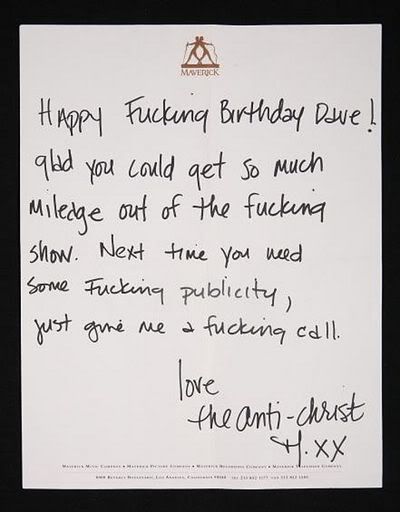 MAVERICK
Happy Fucking Birthday Dave!
glad you could get so much
Miledge out of the fucking
show. Next time you need
some Fucking publicity,
just give me a fucking call.
love
the anti-christ
M. XX
MAVERICK MUSIC COMPANY • MAVERICK PICTURE COMPANY • MAVERICK RECORDING COMPANY • MAVERICK TELEVISION COMPANY
BEVERLY BOULEVARD, LOS ANGELES, CALIFORNIA